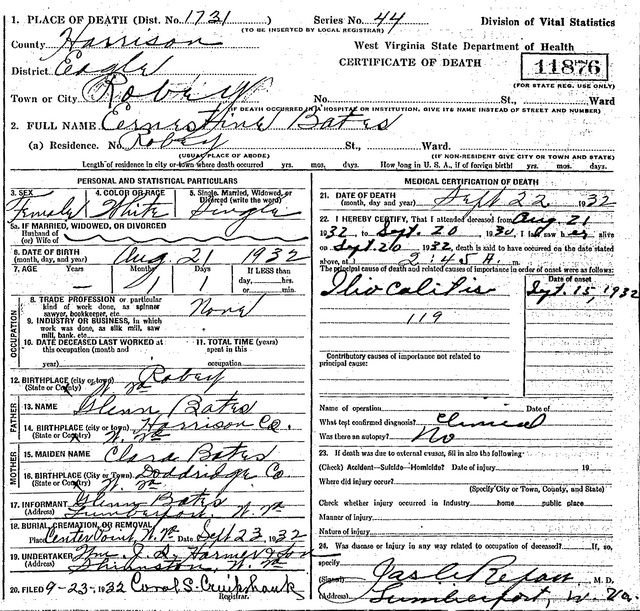 1. PLACE OF DEATH (Dist. No. 1731) Series No. 44 Division of Vital Statistics
(TO BE INSERTED BY LOCAL REGISTRAR)
County Harrison West Virginia State Department of Health
District Eagle CERTIFICATE OF DEATH 11876
(FOR STATE REG. USE ONLY)
Town or City Robey No. St., Ward
(IF DEATH OCCURRED IN A HOSPITAL OR INSTITUTION, GIVE ITS NAME INSTEAD OF STREET AND NUMBER)
2. FULL NAME Eernestine Bates
(a) Residence. No. Robey St., Ward.
(USUAL PLACE OF ABODE) (IF NON-RESIDENT GIVE CITY OR TOWN AND STATE)
Length of residence in city or town where death occurred yrs. mos. days. How long in U. S. A., if of foreign birth? yrs. mos. days.
PERSONAL AND STATISTICAL PARTICULARS
3. SEX 4. COLOR OR RACE 5. Single, Married, Widowed, or Divorced (write the word)
Female White Single
5a. IF MARRIED, WIDOWED, OR DIVORCED
Husband of
(or) Wife of
6. DATE OF BIRTH
(month, day, and year) Aug. 21 1932
7. AGE Years Months Days If LESS than
— 1 1 day, hrs.
or min.
8. TRADE PROFESSION or particular
kind of work done, as spinner
sawyer, bookkeeper, etc. None
OCCUPATION
9. INDUSTRY OR BUSINESS, in which
work was done, as silk mill, saw
mill, bank, etc.
10. DATE DECEASED LAST WORKED at
this occupation (month and
year)
11. TOTAL TIME (years)
spent in this
occupation
12. BIRTHPLACE (city or town) Robey
(State or County) W. Va
FATHER
13. NAME Glenn Bates
14. BIRTHPLACE (city or town) Harrison Co.
(State or Country) W. Va
MOTHER
15. MAIDEN NAME Clara Bates
16. BIRTHPLACE (City or Town) Doddridge Co
(State or Country) W. Va
17. INFORMANT Glenn Bates
(Address) Lumberport, W. Va
18. BURIAL, CREMATION, OR REMOVAL
Place Center Point, W. Va. Date Sept 23, 1932
19. UNDERTAKER Harmer & Son
(Address) Shinnston, W. Va
20. FILED 9-23-1932 Coral S. Cruikshank
Registrar.
MEDICAL CERTIFICATION OF DEATH
21. DATE OF DEATH
(month, day, and year) Sept 22 1932
22. I HEREBY CERTIFY, That I attended deceased from Aug. 21
1932, to Sept. 20 1930, I last saw her alive
on Sept. 20 1932, death is said to have occurred on the date stated
above, at 2:45 A. m.
The principal cause of death and related causes of importance in order of onset were as follows:
Date of onset
Ilio Colitis Sept. 15, 1932
119
Contributory causes of importance not related to
principal cause:
Name of operation Date of
What test confirmed diagnosis? Clinical
Was there an autopsy? No
23. If death was due to external causes, fill in also the following:
(Check) Accident—Suicide—Homicide? Date of injury 19
Where did injury occur?
(Specify City or Town, County, and State)
Check whether injury occurred in Industry home public place
Manner of injury
Nature of injury
24. Was disease or injury in any way related to occupation of deceased? If, so,
specify
(Signed) M. D.
(Address) Lumberport, W. Va.